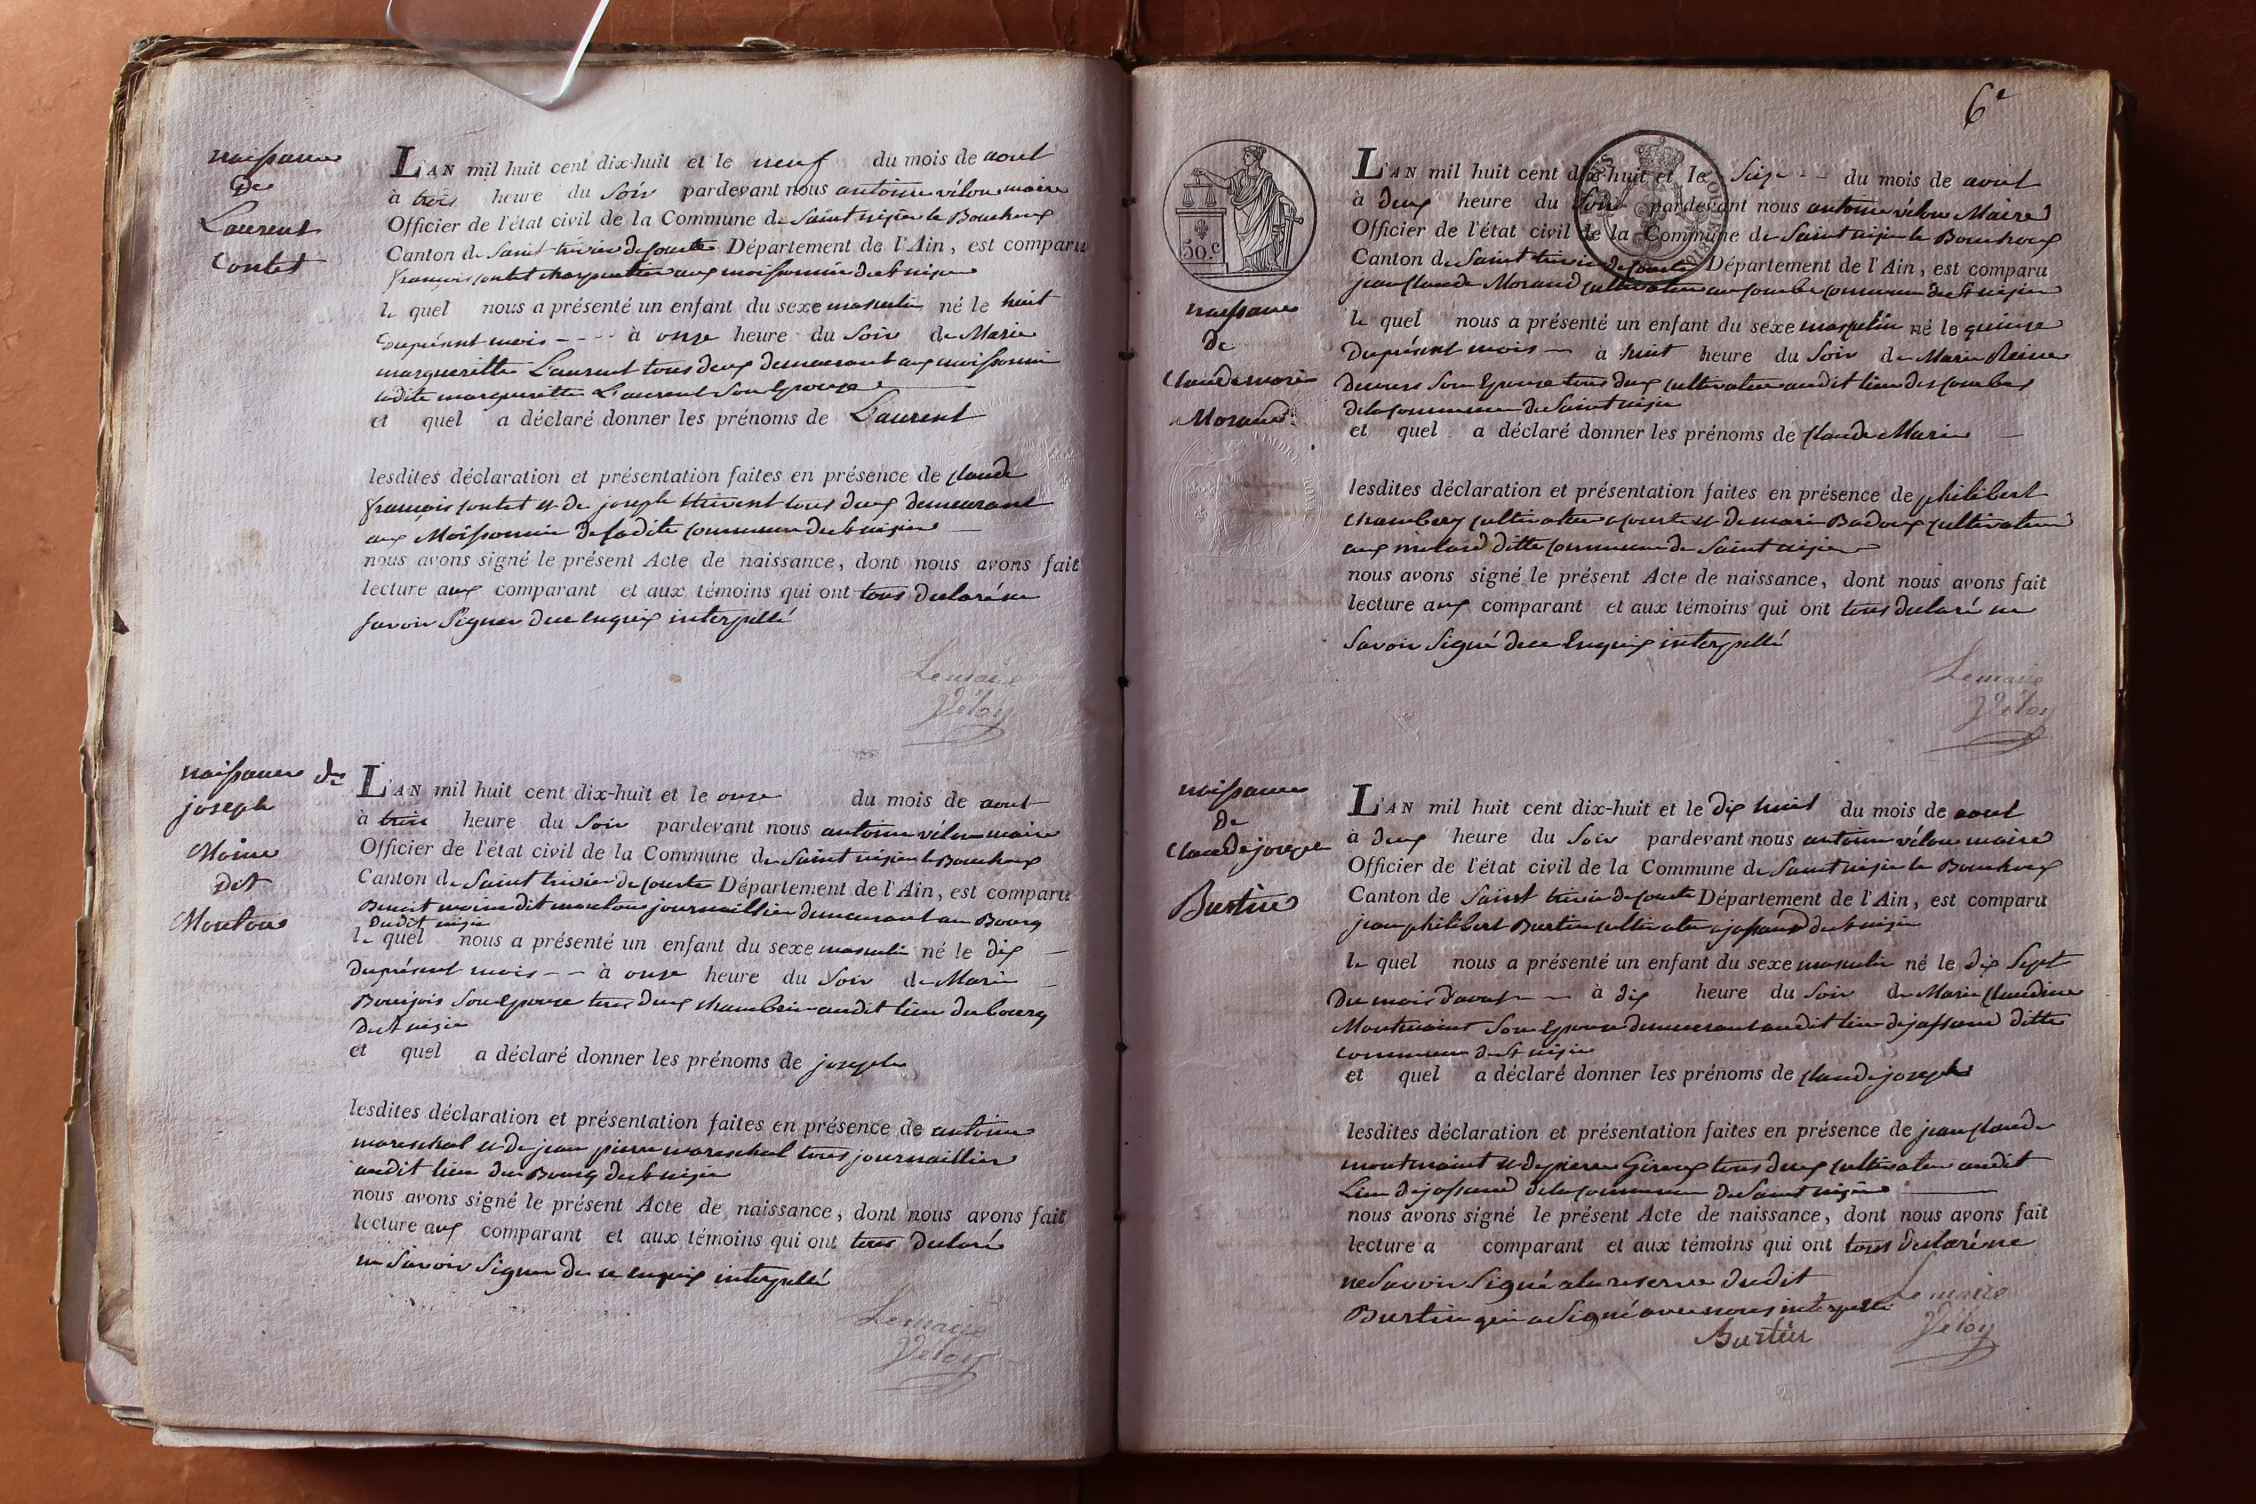 naissance
de
Laurent
Contet
L'AN mil huit cent dix-huit et le neuf du mois de aout
à trois heure du Soir pardevant nous antoine véloy maire
Officier de l'état civil de la Commune de Saint nizier le Bouchoux
Canton de Saint trivier de Courte Département de l'Ain, est comparu
françois contet charpentier aux moissonnier de St nizier
le quel nous a présenté un enfant du sexe masculin né le huit
du présent mois - - - - à onze heure du Soir de Marie
margueritte Laurent tous deux demeurant aux moissonnier
ladite margueritte Laurent Son Epouze
et quel a déclaré donner les prénoms de Laurent
lesdites déclaration et présentation faites en présence de claude
françois contet et de joseph tous deux demeurant
aux Moissonnier de ladite commune de St nizier
nous avons signé le présent Acte de naissance, dont nous avons fait
lecture aux comparant et aux témoins qui ont tous declaré ne
savoir Signer de ce enquis interpellé
Lemaire
Véloy
naissance de
joseph
Moine
dit
Mouton
L'AN mil huit cent dix-huit et le onze du mois de aout
à trois heure du Soir pardevant nous antoine véloy maire
Officier de l'état civil de la Commune de Saint nizier le Bouchoux
Canton de Saint trivier de Courte Département de l'Ain, est comparu
Benoit moine dit mouton journaillier demeurant au Bourg
dudit nizier
le quel nous a présenté un enfant du sexe masculin né le dix
du présent mois - - à onze heure du Soir de Marie
Bourjois Son Epouze tous deux audit lieu du bourg
de St nizier
et quel a déclaré donner les prénoms de joseph
lesdites déclaration et présentation faites en présence de antoine
mareschal et de jean pierre mareschal tous journaillier
audit lieu du Bourg de St nizier
nous avons signé le présent Acte de naissance, dont nous avons fait
lecture aux comparant et aux témoins qui ont tous declaré
ne Savoir Signer de ce enquis interpellé
Lemaire
Véloy
6e
50 c.
naissance
de
Claude marie
Morand
L'AN mil huit cent dix-huit et le Seize - - du mois de aout
à deux heure du Soir pardevant nous antoine véloy Maire
Officier de l'état civil de la Commune de Saint nizier le Bouchoux
Canton de Saint trivier de Courte Département de l'Ain, est comparu
jean Claude Morand cultivateur au combe commune de St nizier
le quel nous a présenté un enfant du sexe masculin né le quinze
du présent mois - à huit heure du Soir de Marie Reine
Son Epouze tous deux cultivateur audit lieu des combes
de la commune de Saint nizier
et quel a déclaré donner les prénoms de Claude Marie
lesdites déclaration et présentation faites en présence de philibert
chambery cultivateur a courte et de marie Badoux cultivateur
aux ditte commune de Saint nizier
nous avons signé le présent Acte de naissance, dont nous avons fait
lecture aux comparant et aux témoins qui ont tous declaré ne
Savoir Signé de ce Enquis interpellé
Lemaire
Véloy
naissance
de
Claude joseph
Burtin
L'AN mil huit cent dix-huit et le dix huit du mois de aout
à deux heure du Soir pardevant nous antoine véloy maire
Officier de l'état civil de la Commune de Saint nizier le Bouchoux
Canton de Saint trivier de Courte Département de l'Ain, est comparu
jean philibert Burtin cultivateur a jassand de St nizier
le quel nous a présenté un enfant du sexe masculin né le dix Sept
du mois d'aout - - à dix heure du Soir de Marie Claudine
Montmaint Son Epouze demeurant audit lieu de jassand ditte
commune de St nizier
et quel a déclaré donner les prénoms de claude joseph
lesdites déclaration et présentation faites en présence de jean claude
montmaint et de pierre Giroux tous deux cultivateur audit
Lieu de jassand de la commune de Saint nizier
nous avons signé le présent Acte de naissance, dont nous avons fait
lecture a comparant et aux témoins qui ont tous declaré ne
ne Savoir Signé a la reserve dudit
Burtin qui a Signé avec nous interpellé
Burtin
Lemaire
Véloy